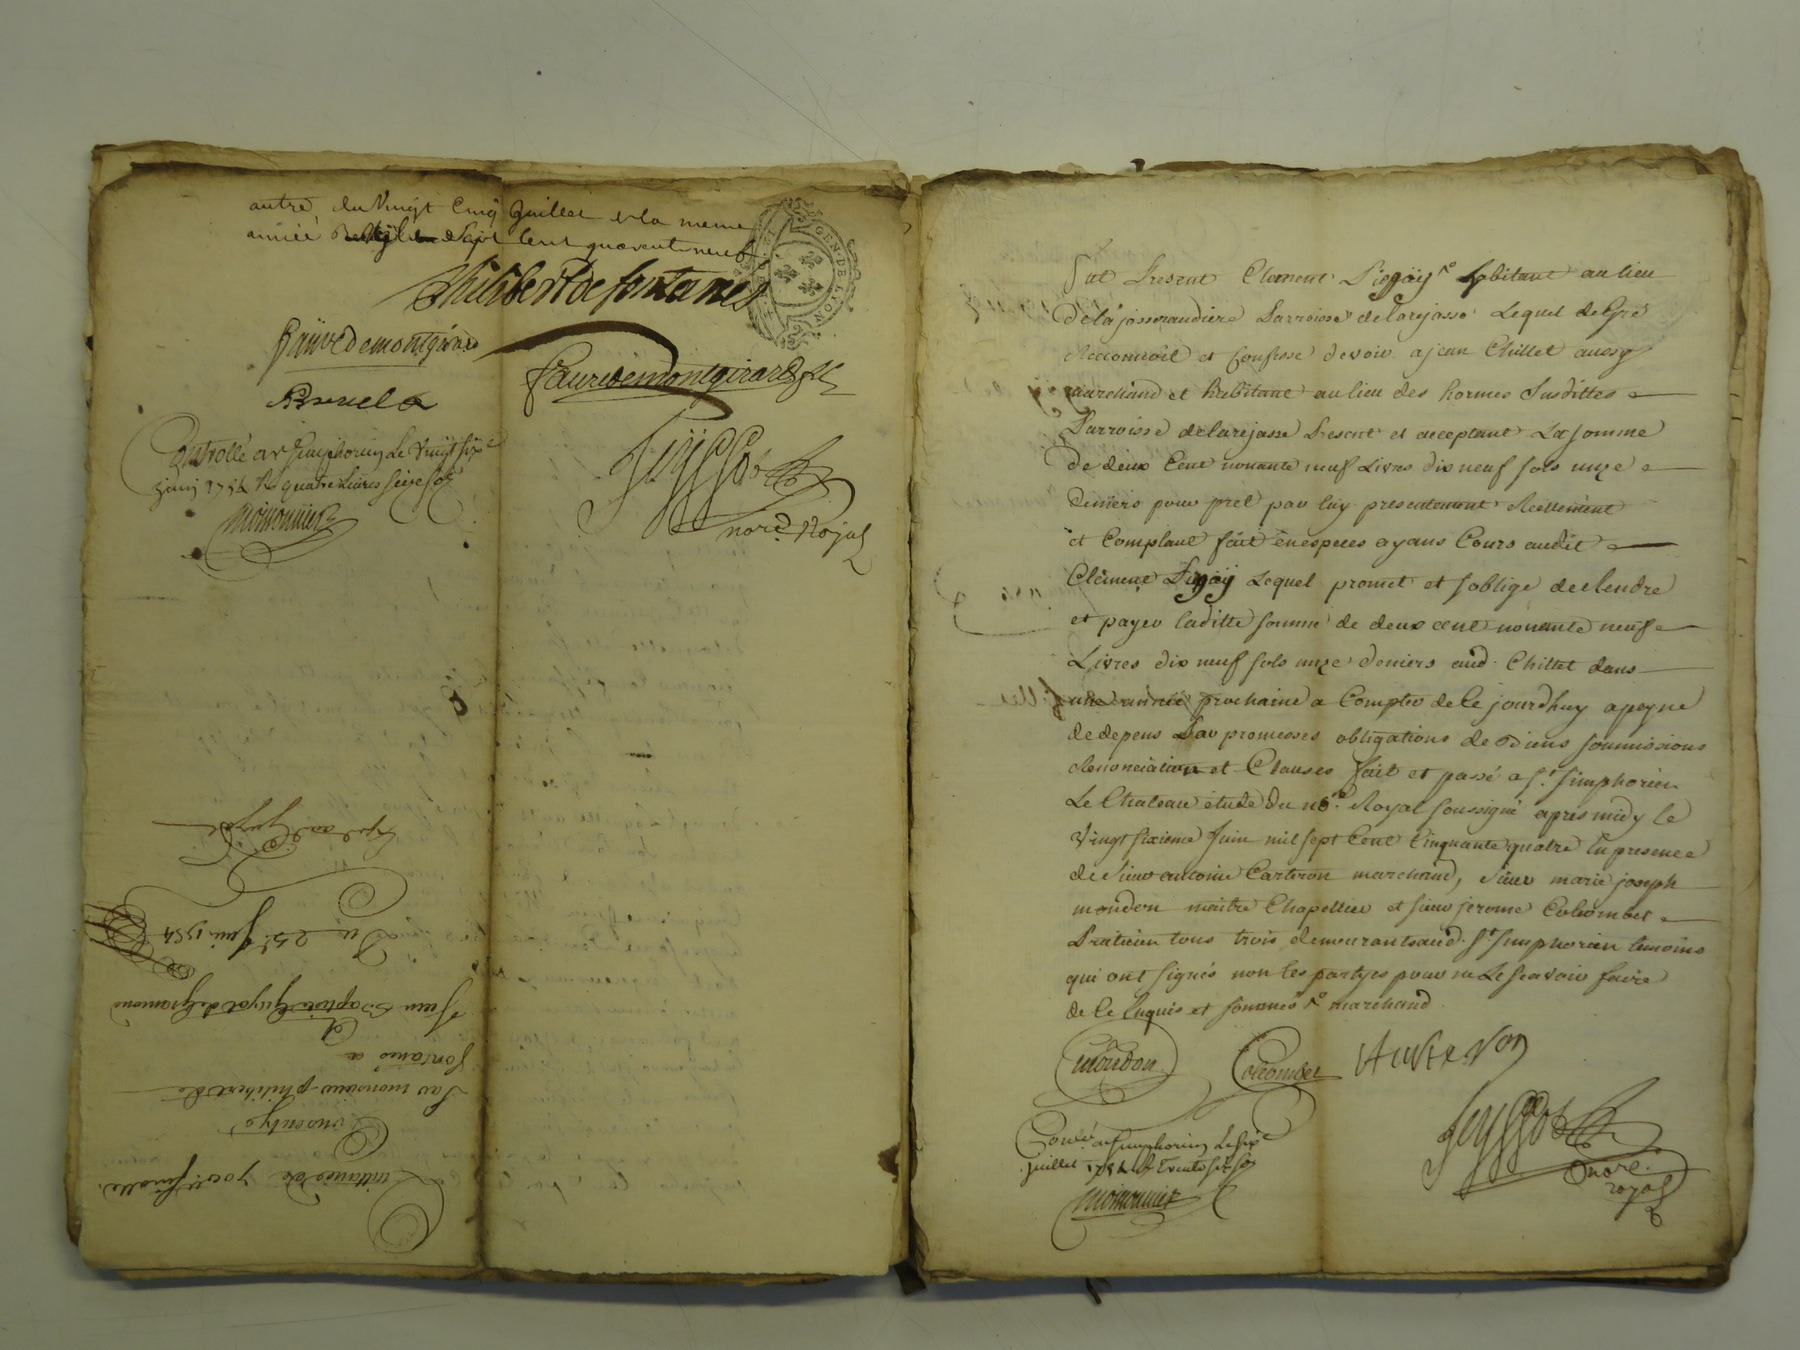 autre du Vingt Cinq Juillet de la meme
année Sept Cent quarante neuf
GEN·DE·LYON
Philibert de fontanes
faure de montgirard
Faure de montgirard fils
Controllé a St Simphorien Le Vingt six
juin 1754 R quatre livres seize sols
Moironnier
Seyssot
nore. Royal
Quittance de 700 lt
Par monsieur philibert de
fontanes a
Jean Baptiste Guyot
Du 25e Juin 1754
fut Present Clement habitant au lieu
de la josserandiere Parroisse de Larejasse Lequel de Gré
Reconnoit et Confesse devoir a jean Chillet aussy
marchand et habitant au lieu des hormes Susdittes
Parroisse de larejasse Present et acceptant La somme
de deux Cent nonante neuf Livres dix neuf sols unze
deniers pour prêt par luy presentement Reellement
et Comptant fait en especes ayans Cours audit
Clement Lequel promet et s'oblige de Rendre
et payer laditte somme de deux cent nonante neuf
Livres dix neuf sols unze deniers aud. Chillet dans
une année prochaine a Compter de Ce jourd'huy a peyne
de depens Par promesses obligations de Biens soumissions
Renonciation et Clauses fait et passé a St. Simphorien
Le Chateau étude du nore. Royal soussigné apres midy le
Vingt sixieme Juin mil sept Cent Cinquante quatre En presence
de Sieur antoine Carteron marchand, Sieur marie joseph
mondon maître Chapellier et sieur jerome Colombet
Praticien tous trois demeurants aud. St. Simphorien temoins
qui ont signés non les partyes pour ne Le scavoir faire
de Ce Enquis et sommés marchand
Mondon
Colombet
Carteron
Conlé a St Simphorien Le six
juillet 1754 R trente six sols
Moironnier
Seyssot
nore.
royal